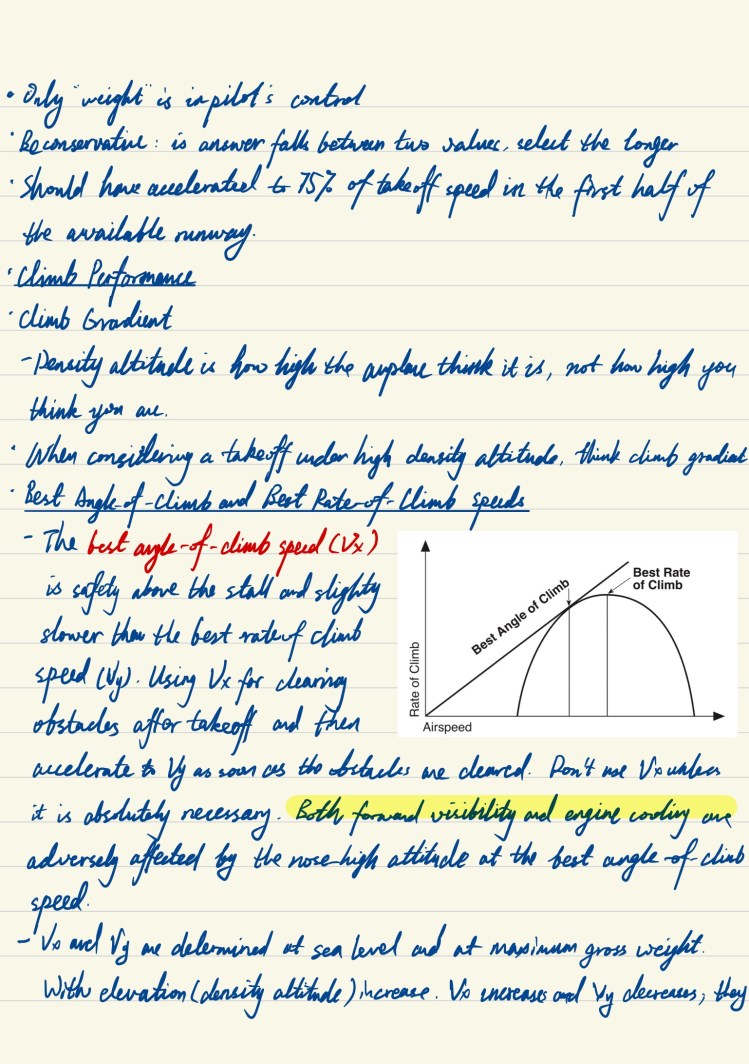 • Only "weight" is in pilot's control
• Be conservative: is answer falls between two values, select the longer
• Should have accelerated to 75% of takeoff speed in the first half of
the available runway.
• Climb Performance
• Climb Gradient
- Density altitude is how high the airplane think it is, not how high you
think you are.
• When considering a takeoff under high density altitude, think climb gradient
• Best Angle-of-Climb and Best Rate-of-Climb speeds
- The best angle-of-climb speed (Vx)
is safely above the stall and slightly
slower than the best rate of climb
speed (Vy). Using Vx for clearing
obstacles after takeoff and then
accelerate to Vy as soon as the obstacles are cleared. Don't use Vx unless
it is absolutely necessary. Both forward visibility and engine cooling are
adversely affected by the nose-high attitude at the best angle-of-climb
speed.
- Vx and Vy are determined at sea level and at maximum gross weight.
With elevation (density altitude) increase. Vx increases and Vy decreases, they
Rate of Climb
Best Angle of Climb
Best Rate
of Climb
Airspeed